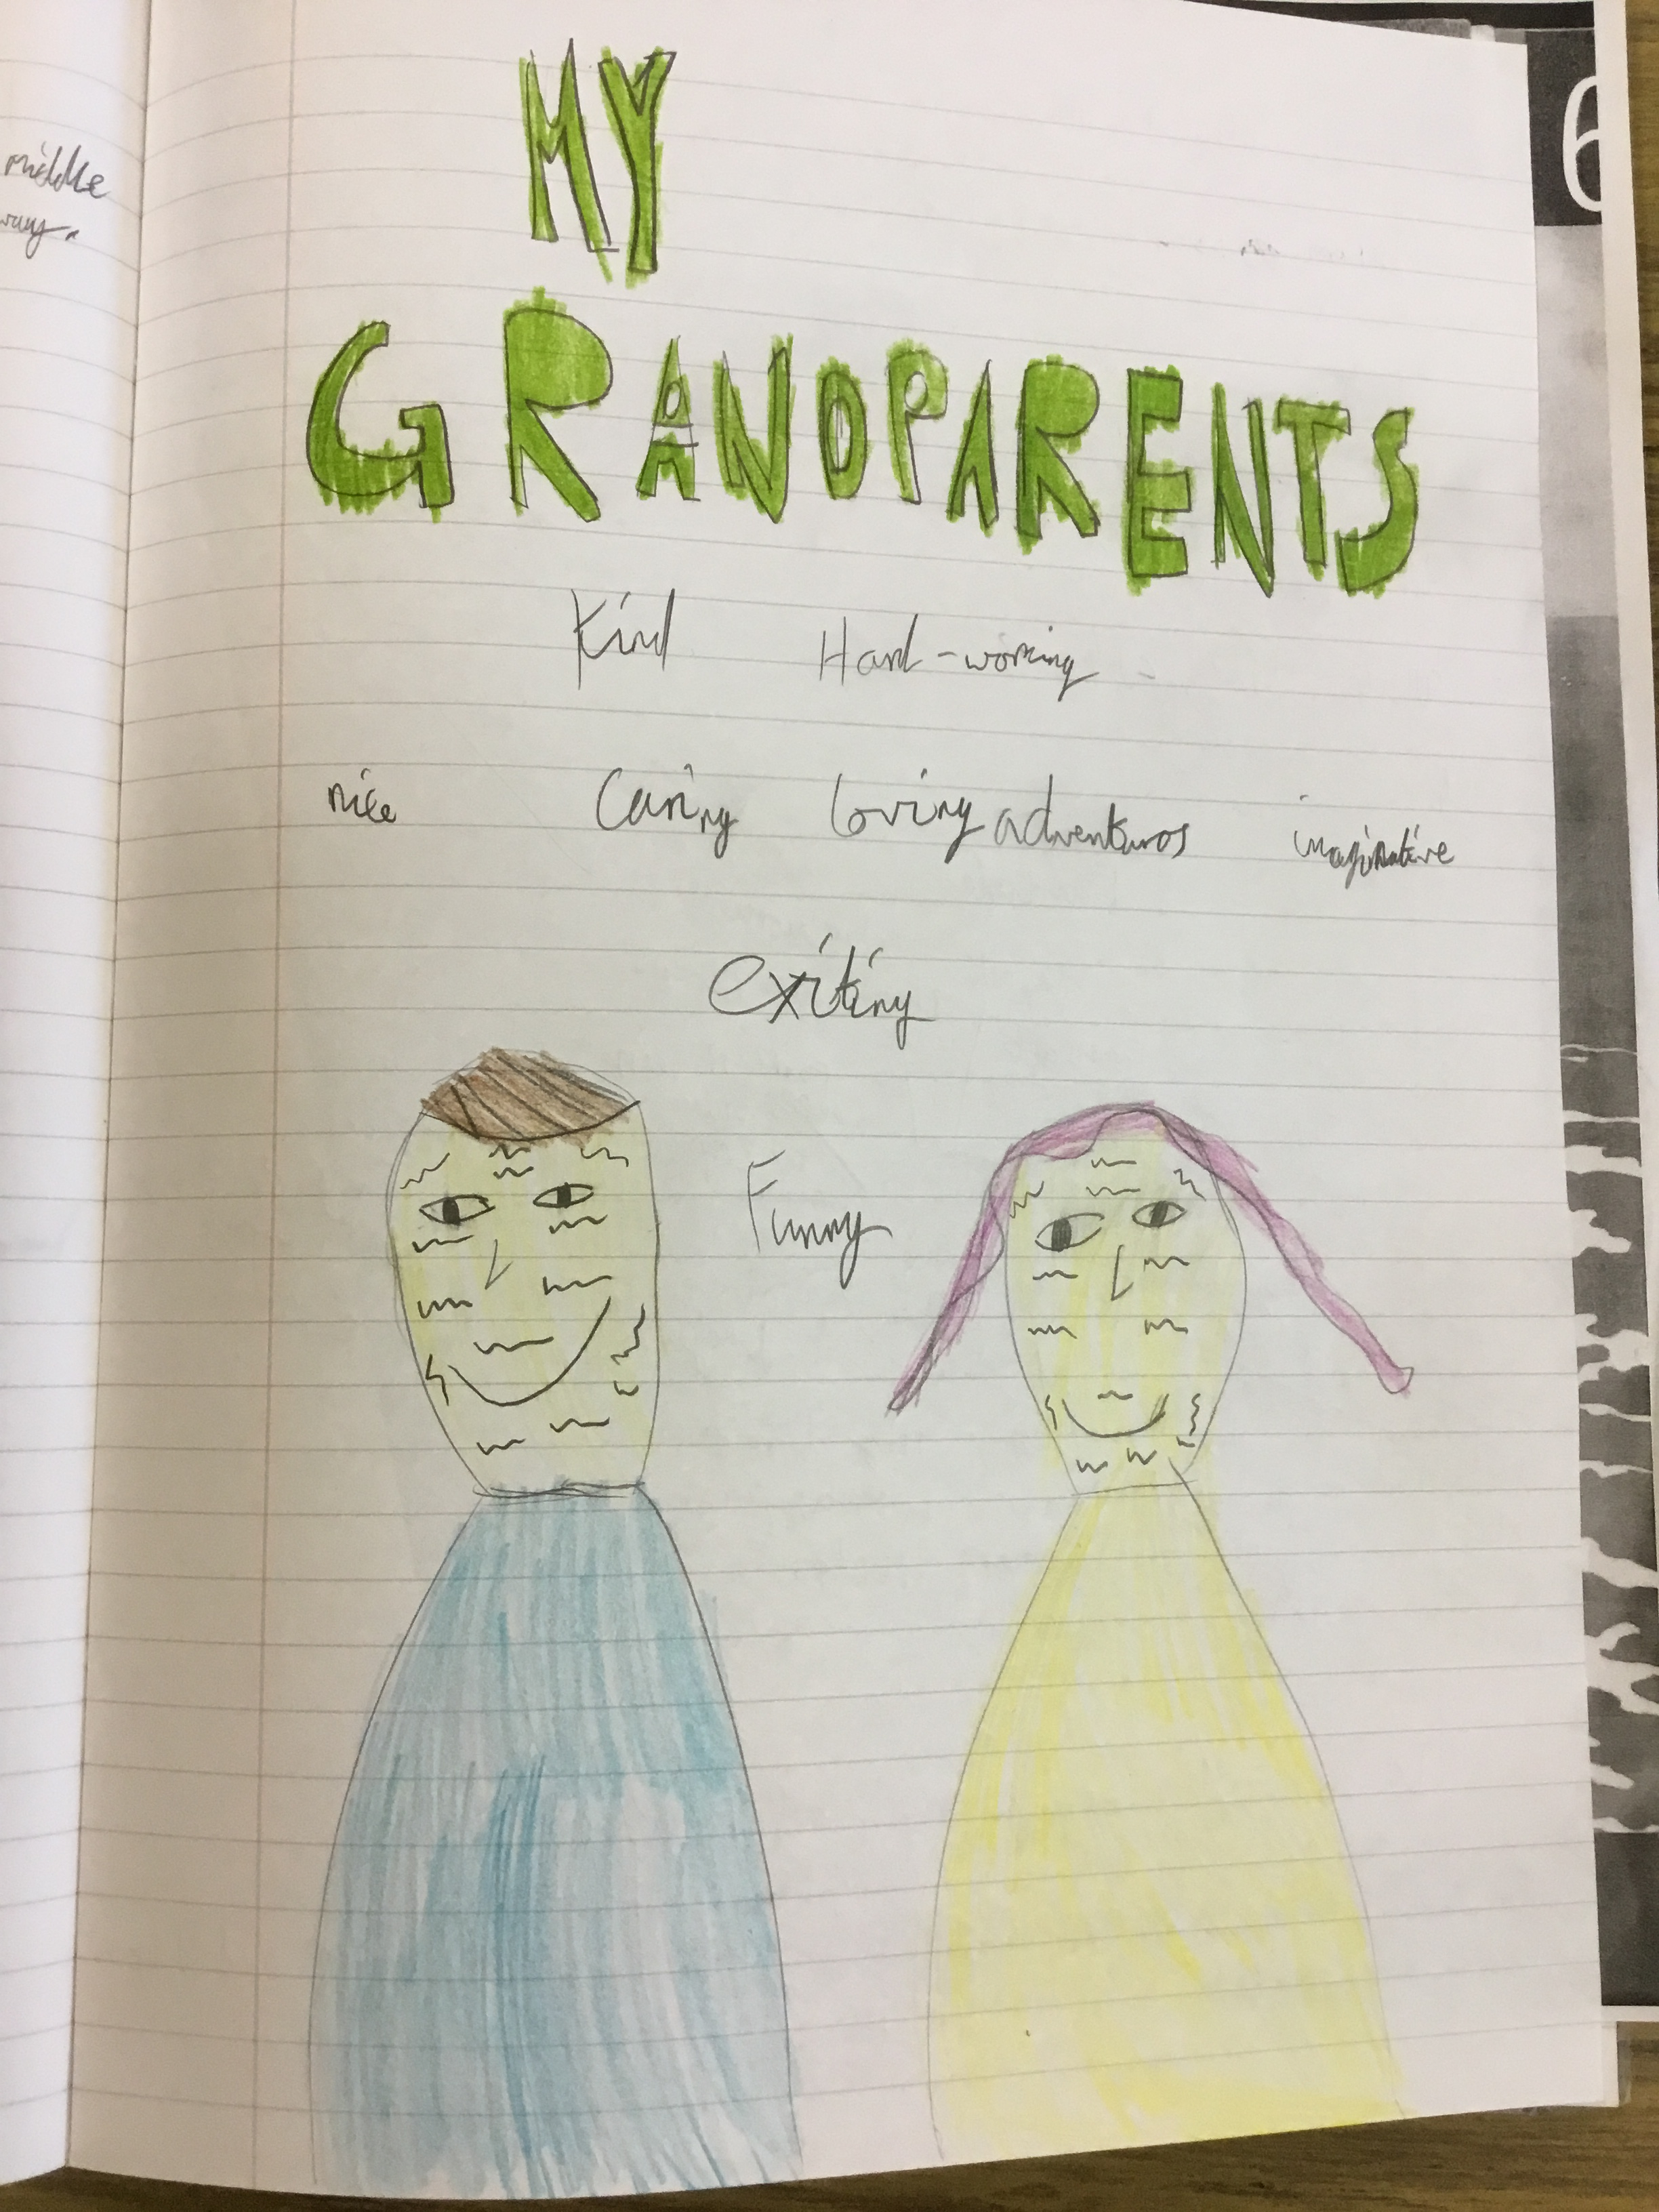 middle
way.
6
MY
GRANDPARENTS
Kind Hard-working
nice Caring loving adventuros imaginative
exiting
Funny